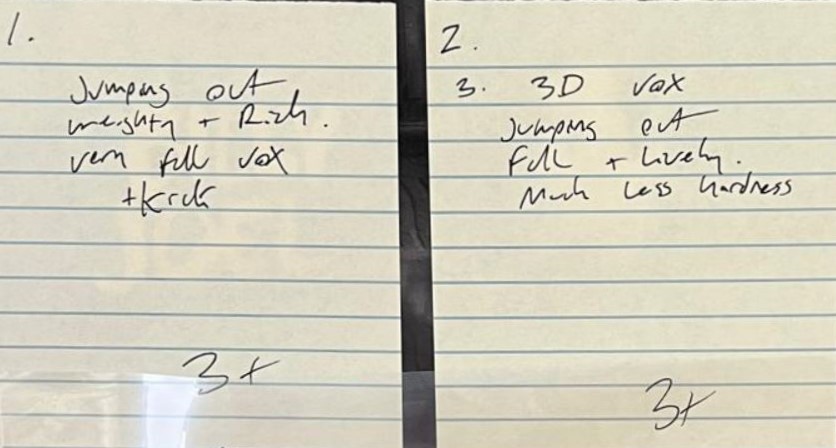 1.
Jumping out
weighty + Rich.
very full vox
+ Kick
3+
2.
3. 3D vox
Jumping out
Full + Lively.
Much Less hardness
3+